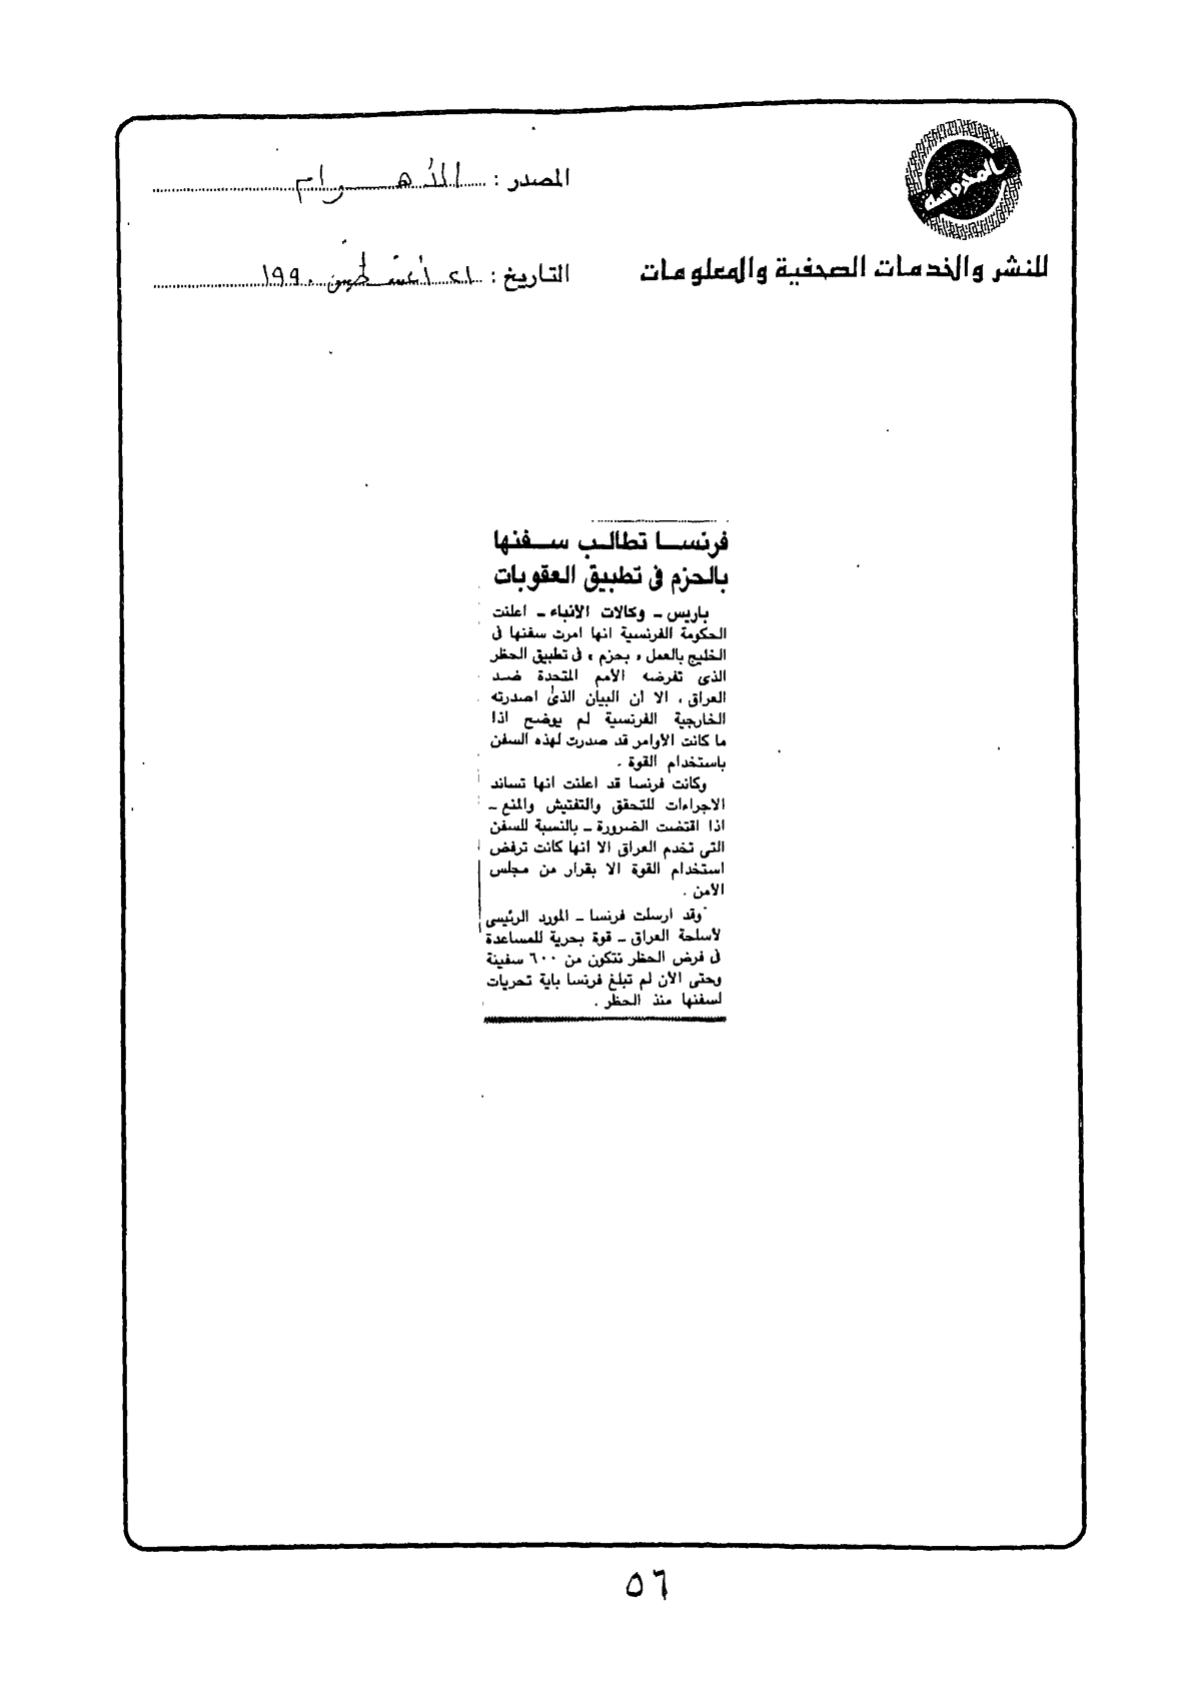 المحروسة
للنشر والخدمات الصحفية والمعلومات
المصدر : الأهرام
التاريخ : ٢١ أغسطس ١٩٩٠
فرنسا تطالب سفنها
بالحزم فى تطبيق العقوبات
باريس ـ وكالات الانباء ـ اعلنت
الحكومة الفرنسية انها امرت سفنها فى
الخليج بالعمل « بحزم » فى تطبيق الحظر
الذى تفرضه الأمم المتحدة ضد
العراق ، الا أن البيان الذى اصدرته
الخارجية الفرنسية لم يوضح اذا
ما كانت الأوامر قد صدرت لهذه السفن
باستخدام القوة .
وكانت فرنسا قد اعلنت انها تساند
الاجراءات للتحقق والتفتيش والمنع ـ
اذا اقتضت الضرورة ـ بالنسبة للسفن
التى تخدم العراق الا انها كانت ترفض
استخدام القوة الا بقرار من مجلس
الأمن .
وقد ارسلت فرنسا ـ المورد الرئيسى
لأسلحة العراق ـ قوة بحرية للمساعدة
فى فرض الحظر تتكون من ٦٠٠ سفينة
وحتى الأن لم تبلغ فرنسا باية تحريات
لسفنها منذ الحظر .
٥٦